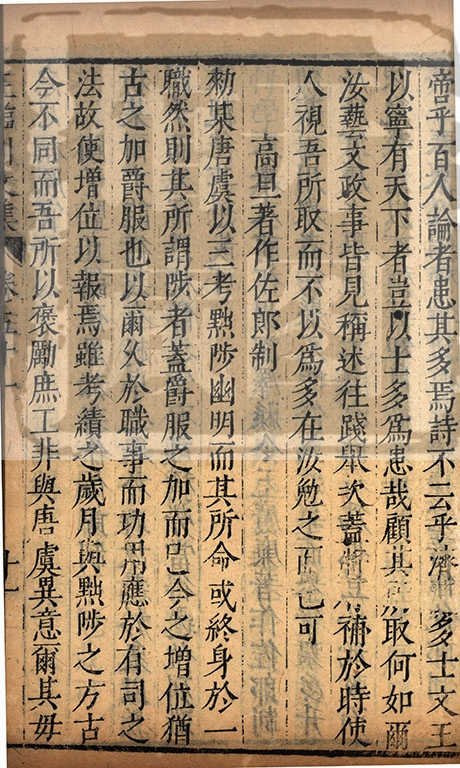 啻乎百人論者患其多焉詩不云乎濟濟多士文王
以寧有天下者豈以士多為患哉顧其所取何如爾
汝藝文政事皆見稱述往踐舉次蓋將有補於時使
人視吾所取而不以為多在汝勉之而已可
高旦著作佐郎制
勑某唐虞以三考黜陟幽明而其所命或終身於一
職然則其所謂陟者蓋爵服之加而已今之增位猶
古之加爵服也以爾久於職事而功用應於有司之
法故使增位以報焉雖考績之歲月與黜陟之方古
今不同而吾所以褒勵庶工非與唐虞異意爾其毋
王臨川文集 卷五十一